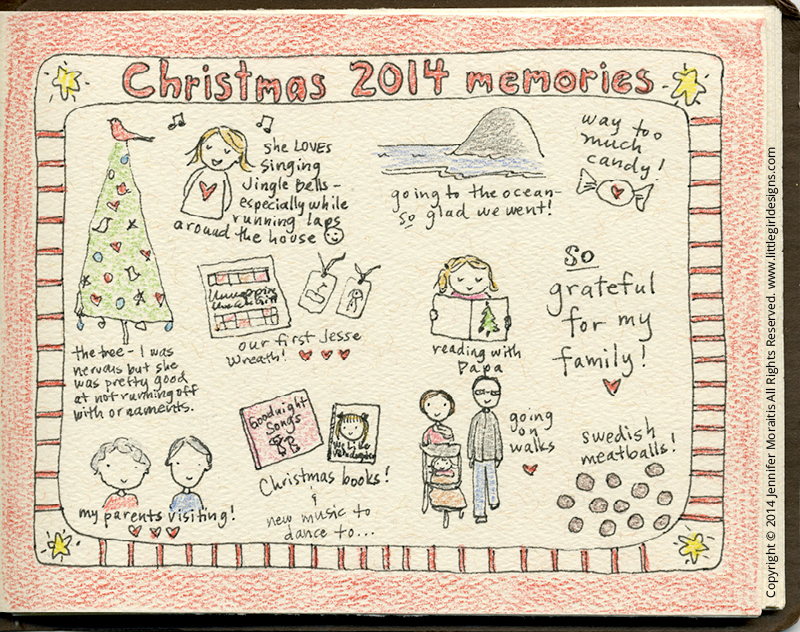 Christmas 2014 memories
she LOVES
singing
Jingle Bells -
especially while
running laps
around the house
going to the ocean-
so glad we went!
way too
much
candy!
the tree - I was
nervous but she
was pretty good
at not running off
with ornaments.
our first Jesse
Wreath!
reading with
Papa
so
grateful
for my
family!
Goodnight
Songs
Christmas books!
&
new music to
dance to...
going
on
walks
swedish
meatballs!
my parents visiting!
Copyright © 2014 Jennifer Moraitis All Rights Reserved. www.littlegirldesigns.com